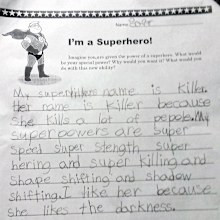 Name
I'm a Superhero!
Imagine you are given the power of a superhero. What would
be your special power? Why would you want it? What would you
do with this new ability?
My superhero name is Killer.
Her name is Killer because
she kills a lot of pepole. My
superpowers are super
speel super stength super
hering and super killing and
shape shifting and shadow
shifting. I like her because
she likes the darkness.